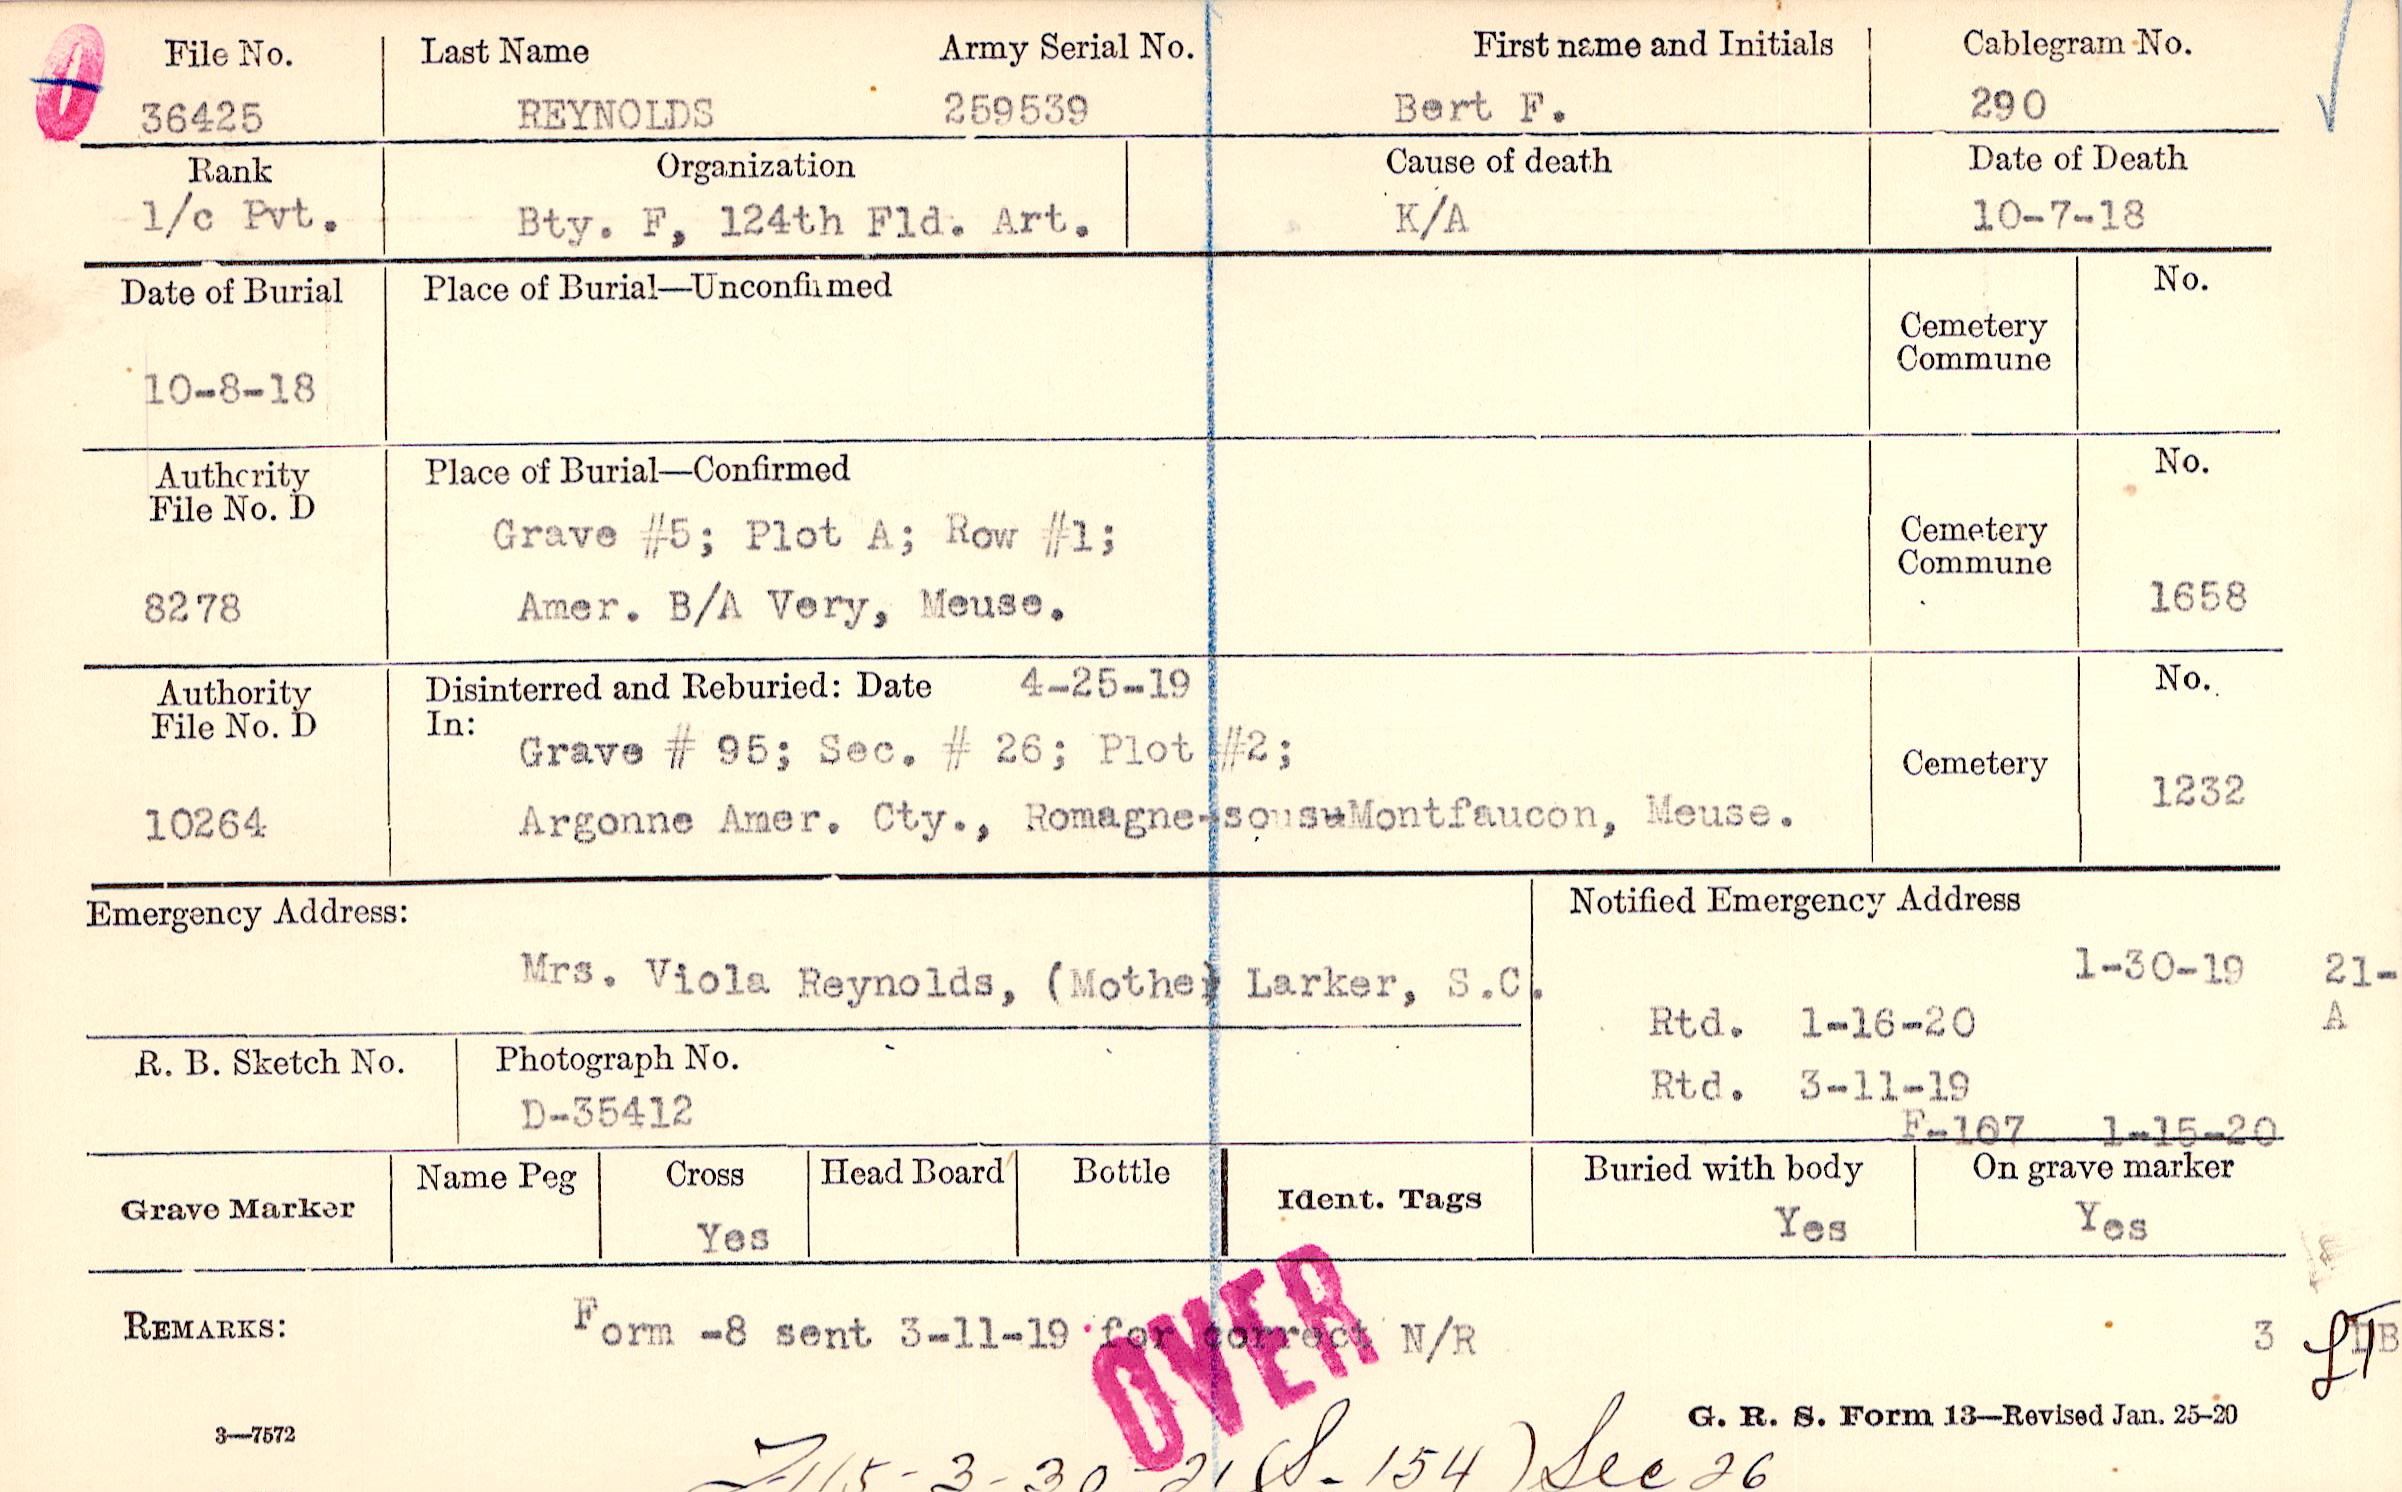 File No. Last Name Army Serial No. First name and Initials Cablegram No.
36425 REYNOLDS 259539 Bert F. 290
Rank Organization Cause of death Date of Death
1/c Pvt. Bty. F, 124th Fld. Art. K/A 10-7-18
Date of Burial Place of Burial—Unconfirmed No.
Cemetery
Commune
10-8-18
Authority Place of Burial—Confirmed No.
File No. D
Grave #5; Plot A; Row #1; Cemetery
Commune
8278 Amer. B/A Very, Meuse. 1658
Authority Disinterred and Reburied: Date 4-25-19 No.
File No. D In:
Grave # 95; Sec. # 26; Plot #2; Cemetery
10264 Argonne Amer. Cty., Romagne-sous-Montfaucon, Meuse. 1232
Emergency Address: Notified Emergency Address
Mrs. Viola Reynolds, (Mother) Larker, S.C. 1-30-19 21-
Rtd. 1-16-20 A
R. B. Sketch No. Photograph No.
D-35412 Rtd. 3-11-19
F-167 1-15-20
Grave Marker Name Peg Cross Head Board Bottle Ident. Tags Buried with body On grave marker
Yes Yes Yes
REMARKS: Form -8 sent 3-11-19 for correct N/R 3 DB
OVER
G. R. S. Form 13—Revised Jan. 25-20
3—7572
3-30-21 (S-154) Sec 26